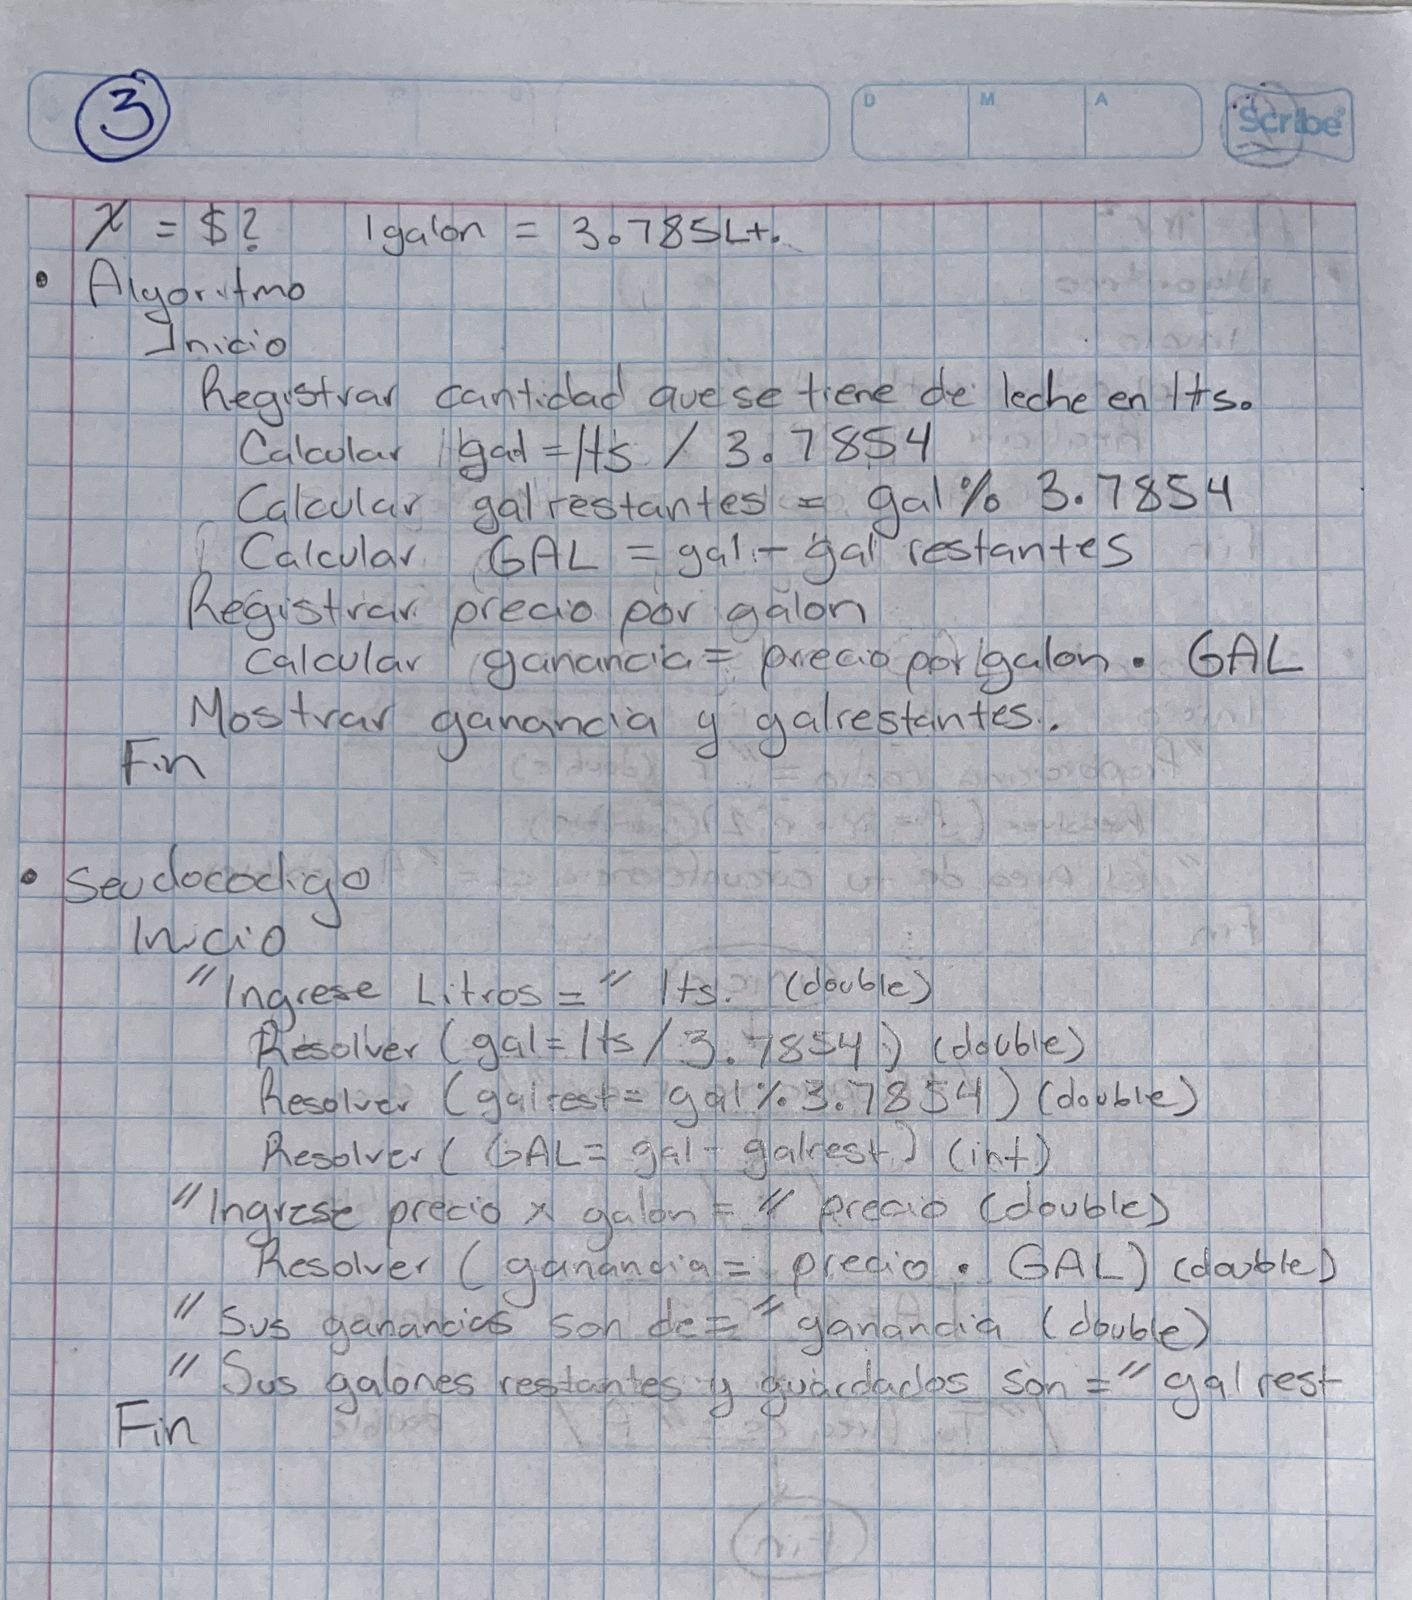 3
D M A
Scribe
X = $? 1galon = 3.785Lt.
• Algoritmo
Inicio
Registrar cantidad que se tiene de leche en lts.
Calcular gal = lts / 3.7854
Calcular gal restantes = gal % 3.7854
Calcular GAL = gal - gal restantes
Registrar precio por galon
Calcular ganancia = precio por galon • GAL
Mostrar ganancia y galrestantes.
Fin
• Seudocodigo
Inicio
"Ingrese Litros = " lts. (double)
Resolver (gal = lts / 3.7854) (double)
Resolver (galrest = gal % 3.7854) (double)
Resolver (GAL = gal - galrest) (int)
"Ingrese precio x galon = " precio (double)
Resolver (ganancia = precio • GAL) (double)
"Sus ganancias son de = " ganancia (double)
"Sus galones restantes y guardados son = " gal rest
Fin